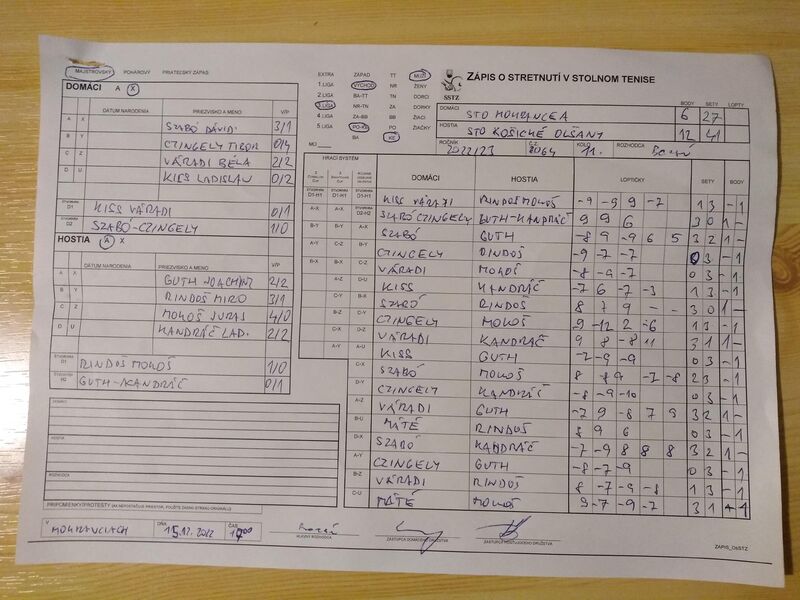 MAJSTROVSKÝ POHÁROVÝ PRIATEĽSKÝ ZÁPAS
DOMÁCI A X
DÁTUM NARODENIA PRIEZVISKO A MENO V/P
A X SZABÓ DÁVID 3/1
B Y CZINGELY TIBOR 0/4
C Z VÁRADI BÉLA 2/2
D U KISS LADISLAV 0/2
ŠTVORHRA D1 KISS VÁRADI 0/1
ŠTVORHRA D2 SZABÓ-CZINGELY 1/0
HOSTIA A X
DÁTUM NARODENIA PRIEZVISKO A MENO V/P
A X GUTH JOACHIM 2/2
B Y RINDOŠ MIRO 3/1
C Z MOKOŠ JURAJ 4/0
D U KANDRÁČ LAD. 2/2
RINDOŠ MOKOŠ 1/0
GUTH-KANDRÁČ 0/1
DOMÁCI
HOSTIA
ROZHODCA
PRIPOMIENKY/PROTESTY
V MOKRANCIACH DŇA 15.12.2022 ČAS
HLAVNÝ ROZHODCA ZÁSTUPCA DOMÁCEHO DRUŽSTVA ZÁSTUPCA HOSŤUJÚCEHO DRUŽSTVA
EXTRA ZÁPAD TT MUŽI
1.LIGA VÝCHOD NR ŽENY
2.LIGA BA-TT TN DORCI
3.LIGA NR-TN ZA DORKY
4.LIGA ZA-BB BB ŽIACI
5.LIGA PO-KE PO ŽIAČKY
MO BA KE
SSTZ
ZÁPIS O STRETNUTÍ V STOLNOM TENISE
BODY SETY LOPTY
DOMÁCI STO MOKRANCE A 6 27
HOSTIA STO KOŠICKÉ OĽŠANY 12 41
ROČNÍK 2022/23 Č.Z. 2064 KOLO 11. ROZHODCA
HRACÍ SYSTÉM
DOMÁCI HOSTIA LOPTIČKY SETY BODY
KISS VÁRADI RINDOŠ MOKOŠ -9 -9 9 -7 1 3 - 1
SZABÓ CZINGELY GUTH-KANDRÁČ 9 9 6 3 0 1 -
SZABÓ GUTH -8 9 -9 6 5 3 2 1 -
CZINGELY RINDOŠ -9 -7 -7 0 3 - 1
VÁRADI MOKOŠ -8 -9 -7 0 3 - 1
KISS KANDRÁČ -7 6 -7 -3 1 3 - 1
SZABÓ RINDOŠ 8 7 9 - - 3 0 1 -
CZINGELY MOKOŠ 9 -12 2 -6 1 3 - 1
VÁRADI KANDRÁČ 9 8 -8 11 3 1 1 -
KISS GUTH -7 -9 -9 0 3 - 1
SZABÓ MOKOŠ 8 -8 9 -7 -8 2 3 - 1
CZINGELY KANDRÁČ -8 -9 -10 0 3 - 1
VÁRADI GUTH -7 9 -8 7 9 3 2 1 -
MÁTÉ RINDOŠ 8 9 6 0 3 - 1
SZABÓ KANDRÁČ -7 -9 8 8 8 3 2 1 -
CZINGELY GUTH -8 -7 -9 0 3 - 1
VÁRADI RINDOŠ 8 -7 -9 -8 1 3 - 1
MÁTÉ MOKOŠ 9 -7 -9 -7
ZÁPIS_OsSTZ